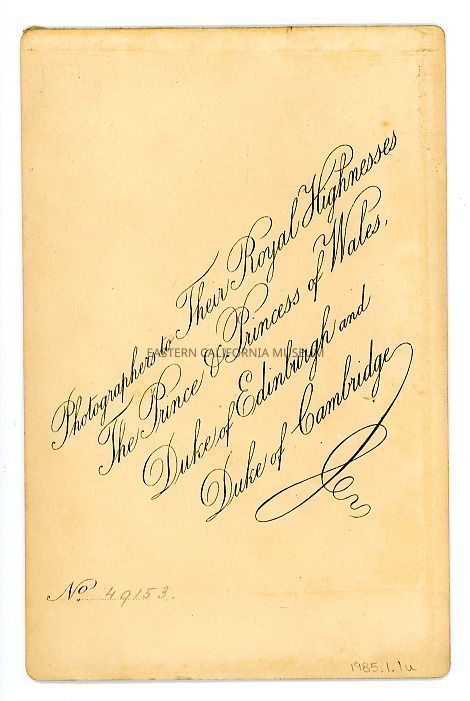 Photographers to Their Royal Highnesses
The Prince & Princess of Wales,
Duke of Edinburgh and
Duke of Cambridge
EASTERN CALIFORNIA MUSEUM
No 49153.
1985.1.1u